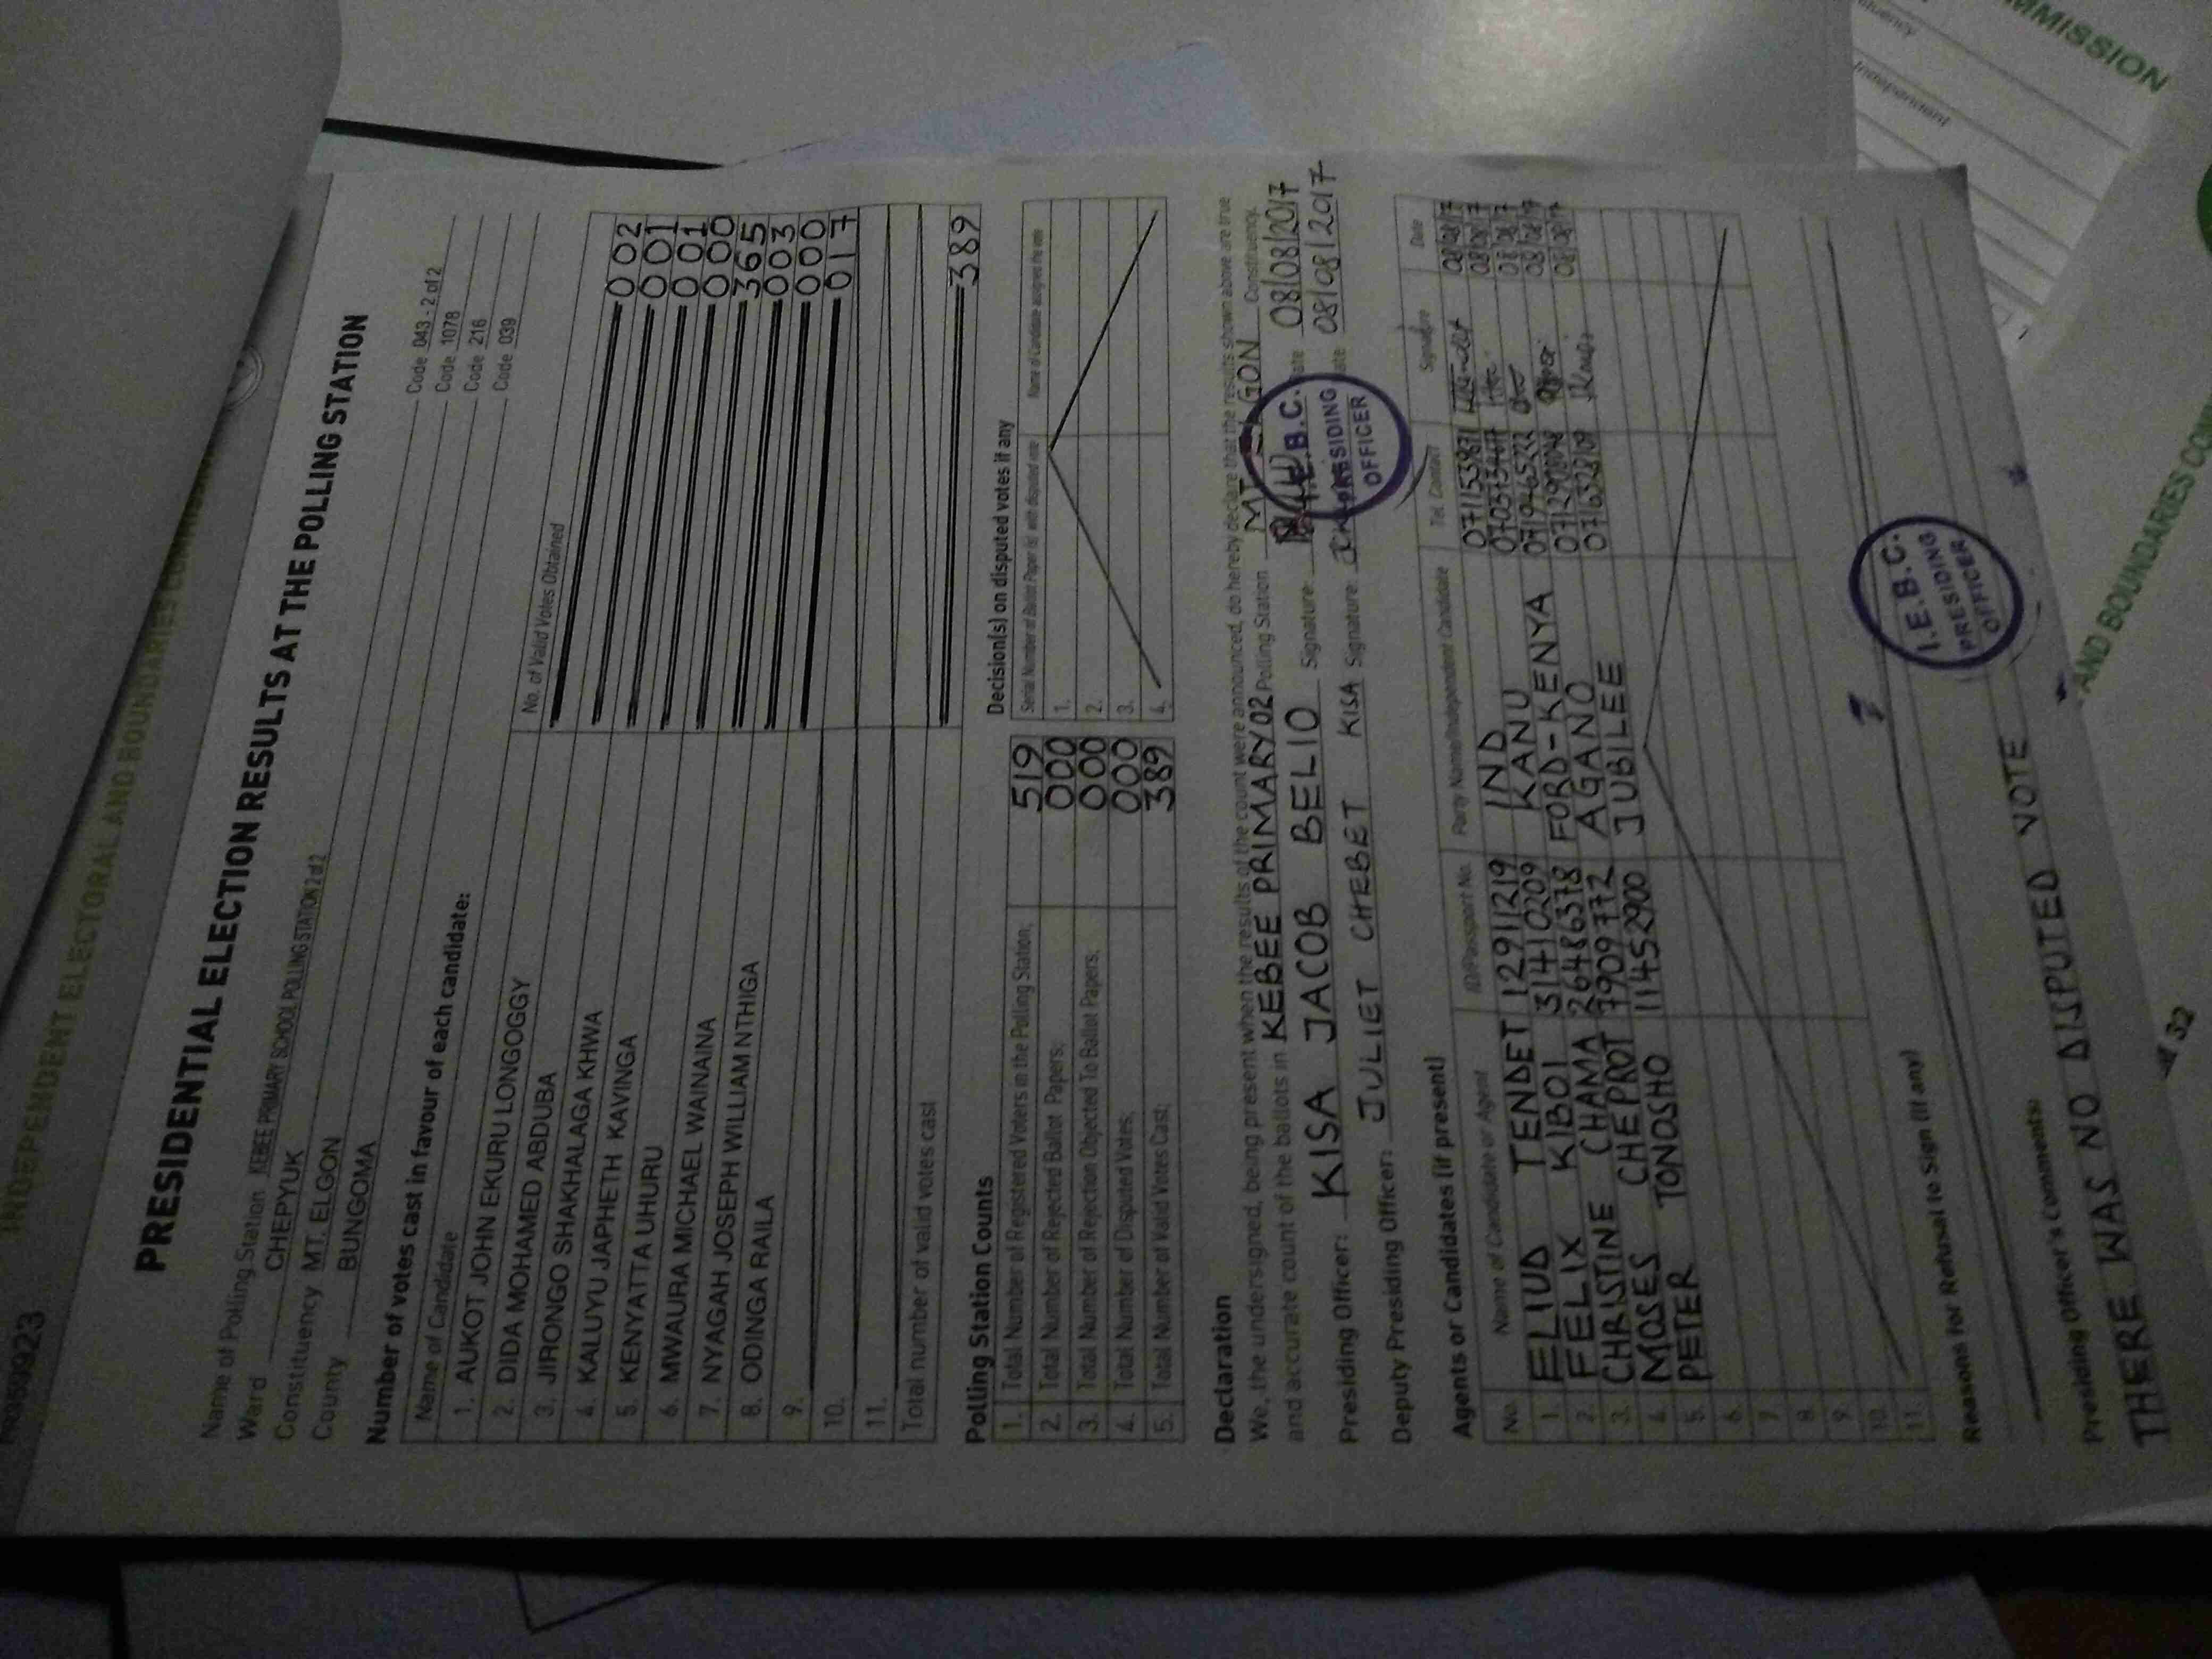 INDEPENDENT ELECTORAL AND BOUNDARIES
PRESIDENTIAL ELECTION RESULTS AT THE POLLING STATION
Name of Polling Station KEBEE PRIMARY SCHOOL POLLING STATION 2 of 2 Code 043 - 2 of 2
Ward CHEPYUK Code 1078
Constituency MT. ELGON Code 216
County BUNGOMA Code 039
Number of votes cast in favour of each candidate:
Name of Candidate No. of Valid Votes Obtained
1. AUKOT JOHN EKURU LONGOGGY 002
2. DIDA MOHAMED ABDUBA 001
3. JIRONGO SHAKHALAGA KHWA 001
4. KALUYU JAPHETH KAVINGA 000
5. KENYATTA UHURU 365
6. MWAURA MICHAEL WAINAINA 003
7. NYAGAH JOSEPH WILLIAM NTHIGA 000
8. ODINGA RAILA 017
9.
10.
11.
Total number of valid votes cast 389
Polling Station Counts
1. Total Number of Registered Voters in the Polling Station; 519
2. Total Number of Rejected Ballot Papers; 000
3. Total Number of Rejection Objected To Ballot Papers; 000
4. Total Number of Disputed Votes; 000
5. Total Number of Valid Votes Cast; 389
Decision(s) on disputed votes if any
1.
2.
3.
4.
Declaration
We, the undersigned, being present when the results of the count were announced, do hereby declare that the results shown above are true
and accurate count of the ballots in KEBEE PRIMARY 02 Polling Station Constituency.
Presiding Officer: KISA JACOB BELIO Signature: Date 08/08/2017
Deputy Presiding Officer: JULIET CHEBET KISA Signature: 08/08/2017
I.E.B.C.
PRESIDING
OFFICER
Agents or Candidates (if present)
No. Name of Candidate or Agent ID/Passport No. Party Name/Independent Candidate Tel. Contact Signature Date
1. ELIUD TENDET 12911219 IND
2. FELIX KIBOI 31410209 KANU
3. CHRISTINE CHAMA 26486378 FORD-KENYA
4. MOSES CHEPROT 7909772 AGANO
5. PETER TONOSHO 11452900 JUBILEE
6.
7.
8.
9.
10.
11.
Reasons for Refusal to Sign (if any)
Presiding Officer's Comments:
THERE WAS NO DISPUTED VOTE
I.E.B.C.
PRESIDING
OFFICER
32
AND BOUNDARIES
MMISSION
Independent